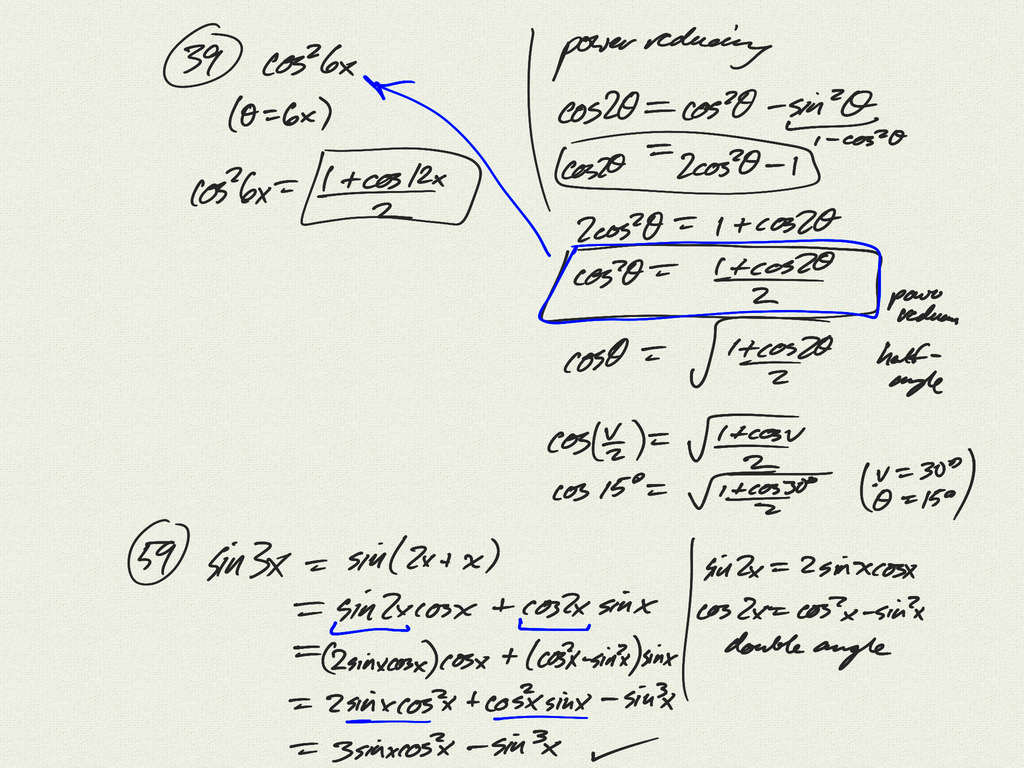 39 cos²6x
(θ=6x)
cos²6x = (1+cos12x)/2
power reducing
cos2θ = cos²θ - sin²θ
1-cos²θ
cos2θ = 2cos²θ - 1
2cos²θ = 1+cos2θ
cos²θ = (1+cos2θ)/2
power
half-
angle
cosθ = √((1+cos2θ)/2)
cos(v/2) = √((1+cosv)/2)
cos 15° = √((1+cos30°)/2)
(v=30°
θ=15°)
59 sin3x = sin(2x+x)
= sin2xcosx + cos2x sinx
= (2sinxcosx)cosx + (cos²x-sin²x)sinx
= 2sinxcos²x + cos²xsinx - sin³x
= 3sinxcos²x - sin³x ✓
sin2x = 2sinxcosx
cos2x = cos²x-sin²x
double angle